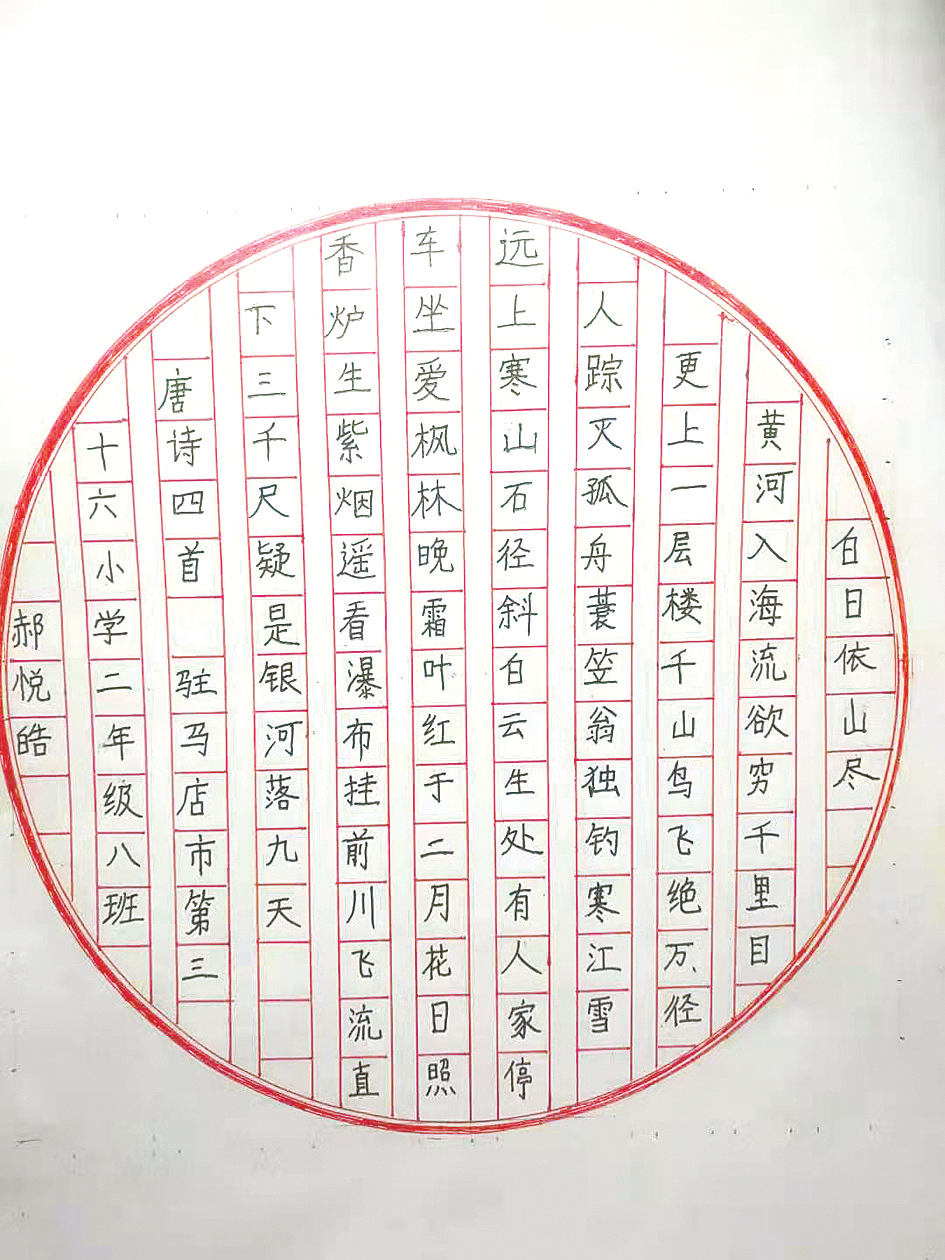 白日依山尽
黄河入海流欲穷千里目
更上一层楼千山鸟飞绝万径
人踪灭孤舟蓑笠翁独钓寒江雪
远上寒山石径斜白云生处有人家停
车坐爱枫林晚霜叶红于二月花日照
香炉生紫烟遥看瀑布挂前川飞流直
下三千尺疑是银河落九天
唐诗四首 驻马店市第三
十六小学二年级八班
郝悦皓